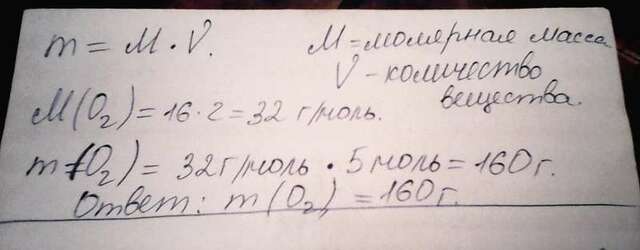 m = M · V.
M = молярная масса
V – количество
вещества.
M(O₂) = 16 · 2 = 32 г/моль.
m (O₂) = 32 г/моль · 5 моль = 160 г.
Ответ: m (O₂) = 160 г.